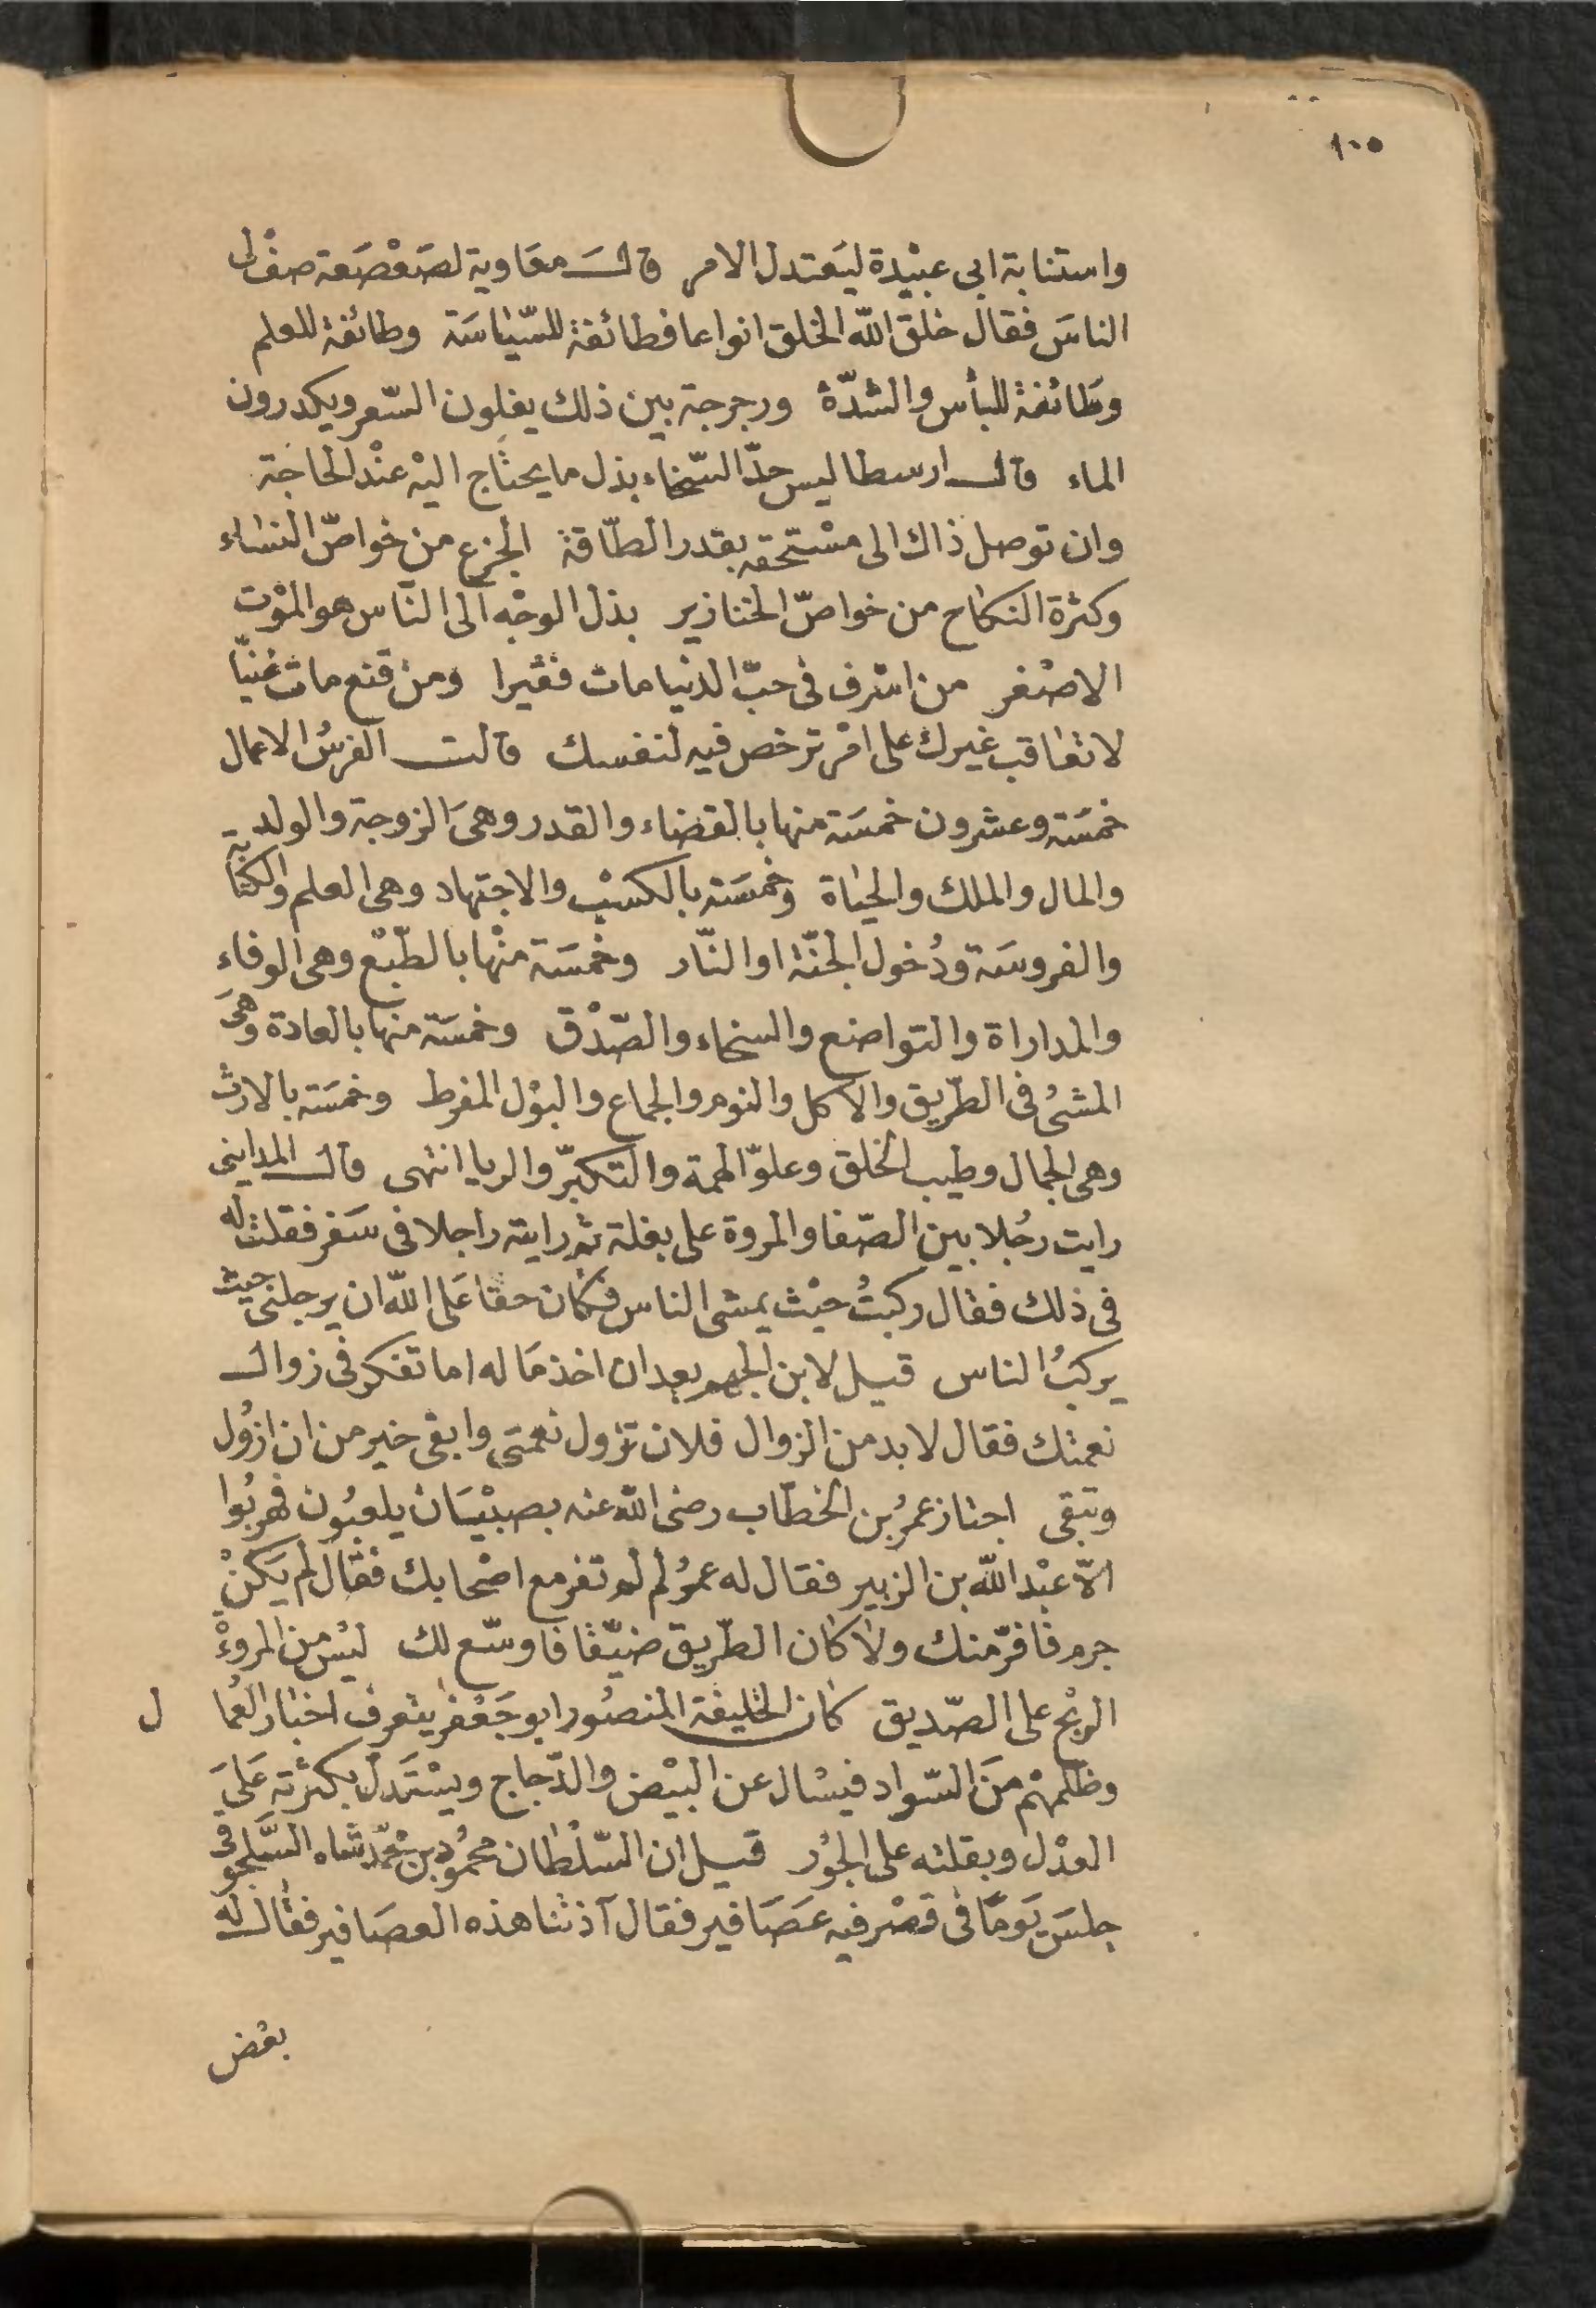 ١٠٥
واستنابة ابى عبيدة ليعتدل الامر قال معاوية لصعصعة صف لى
الناس فقال خلق الله الخلق انواعا فطائفة للسياسة وطائفة للعلم
وطائفة للبأس والشدّة ورجرجة بين ذلك يغلون السّعر ويكدرون
الماء قال ارسطاليس حدّ السّخاء بذل ما يحتاج اليه عند الحاجة
وان توصل ذاك الى مستحقه بقدر الطّاقة الجزع من خواصّ النساء
وكثرة النكاح من خواصّ الخنازير بذل الوجه الى النّاس هو الموت
الاصغر من اسرف فى حبّ الدنيا مات فقيرا ومن قنع مات غنيّا
لا تعاقب غيرك على امر ترخص فيه لنفسك قالت الفرس الاعمال
خمسة وعشرون خمسة منها بالقضاء والقدر وهى الزوجة والولد
والمال والملك والحياة وخمسة بالكسب والاجتهاد وهى العلم والكتابة
والفروسة ودخول الجنّة او النّار وخمسة منها بالطّبع وهى الوفاء
والمداراة والتواضع والسخاء والصّدق وخمسة منها بالعادة وهى
المشى فى الطّريق والاكل والنوم والجماع والبول المفرط وخمسة بالارث
وهى الجمال وطيب الخلق وعلوّ الهمة والتكبّر والريا انتهى قال المداينى
رايت رجلا بين الصّفا والمروة على بغلة ثم رايته راجلا فى سفر فقلت له
فى ذلك فقال ركبتُ حيث يمشى الناس فكان حقا على الله ان يرجلنى حيث
يركب الناس قيل لابن الجهم بعد ان اخذ ماله اما تفكر فى زوال
نعمتك فقال لا بد من الزوال فلان تزول نعمتى وابقى خير من ان ازول
وتبقى اجتاز عمر بن الخطّاب رضى الله عنه بصبيان يلعبون فهربوا
الاّ عبد الله بن الزبير فقال له عمر لم لم تفر مع اصحابك فقال لم يكن
جرم فافرّ منك ولا كان الطّريق ضيّقا فاوسّع لك ليس من المروءة
الربح على الصّديق كان الخليفة المنصور ابو جعفر يتعرف اخبار العمال
وظلمهم من السّواد فيسال عن البيض والدّجاج ويستدل بكثرته على
العدل وبقلته على الجور قيل ان السّلطان محمود بن محمّد شاه السّلجوقى
جلس يوما فى قصر فيه عصافير فقال آذتنا هذه العصافير فقال له
بعض